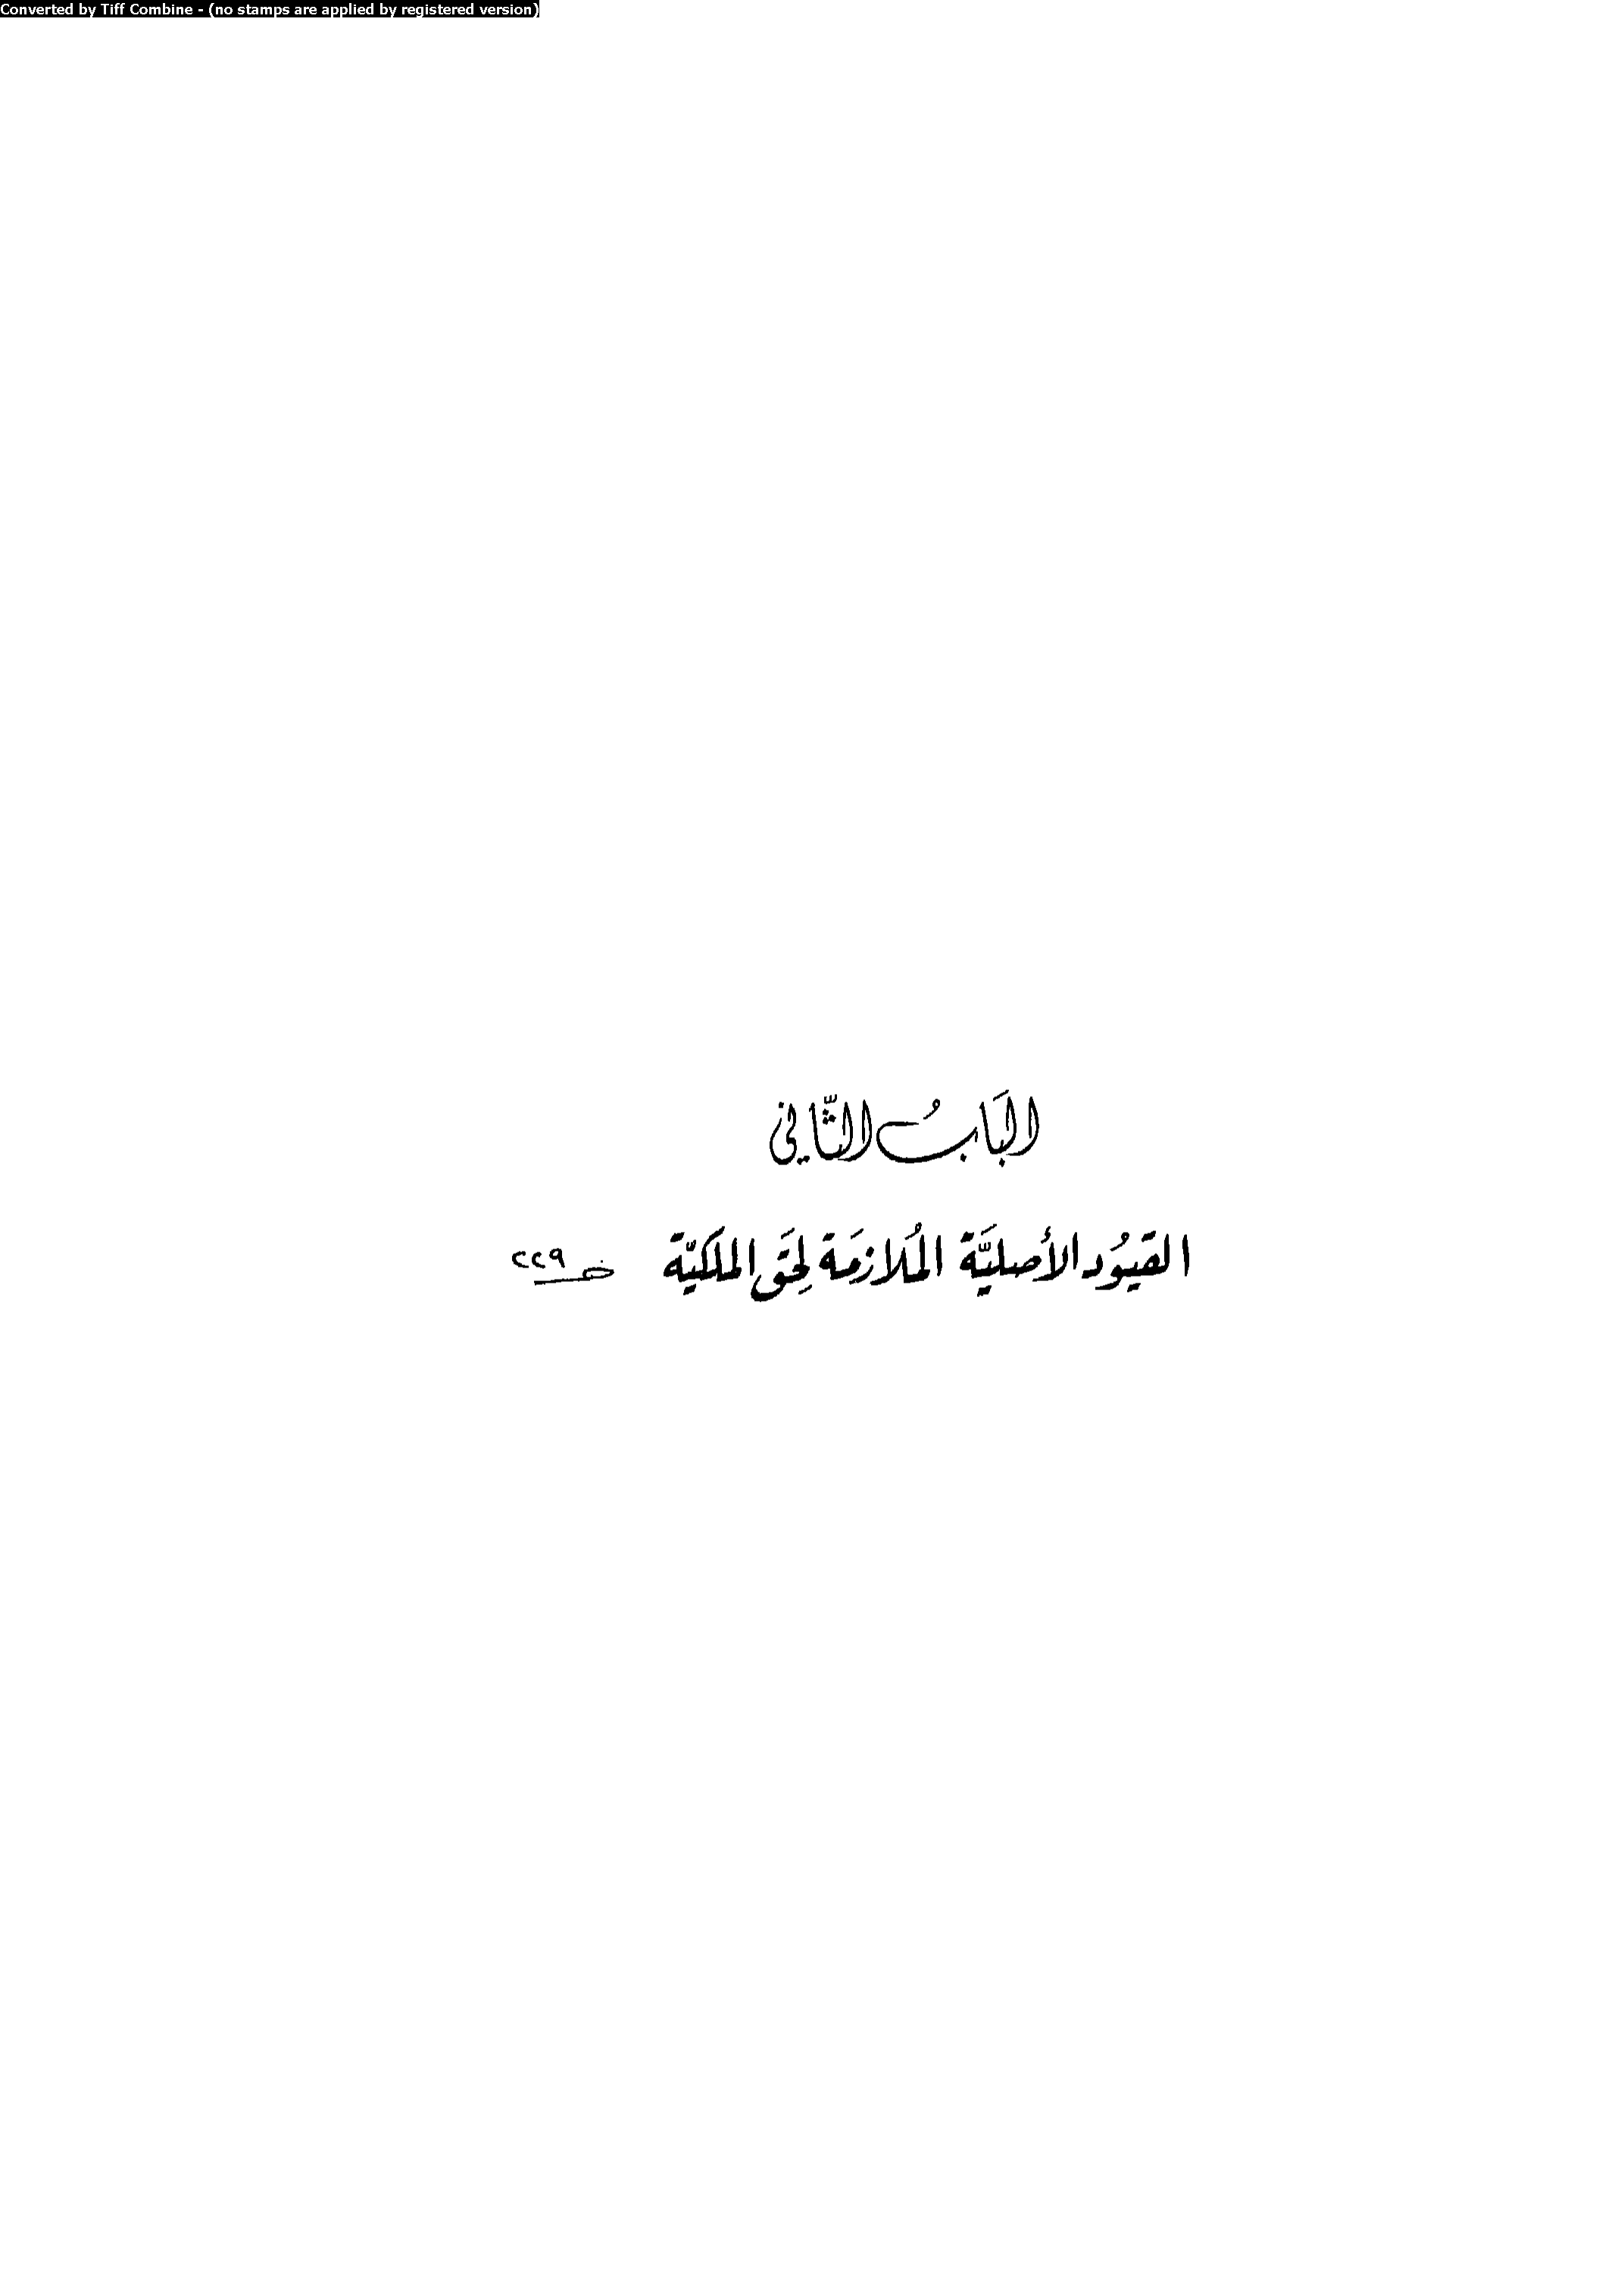 Converted by Tiff Combine - (no stamps are applied by registered version)
البَابُ الثّاني
القيُود الأصليَّة المُلازمَة لِحَق الملكيّة ٢٢٩